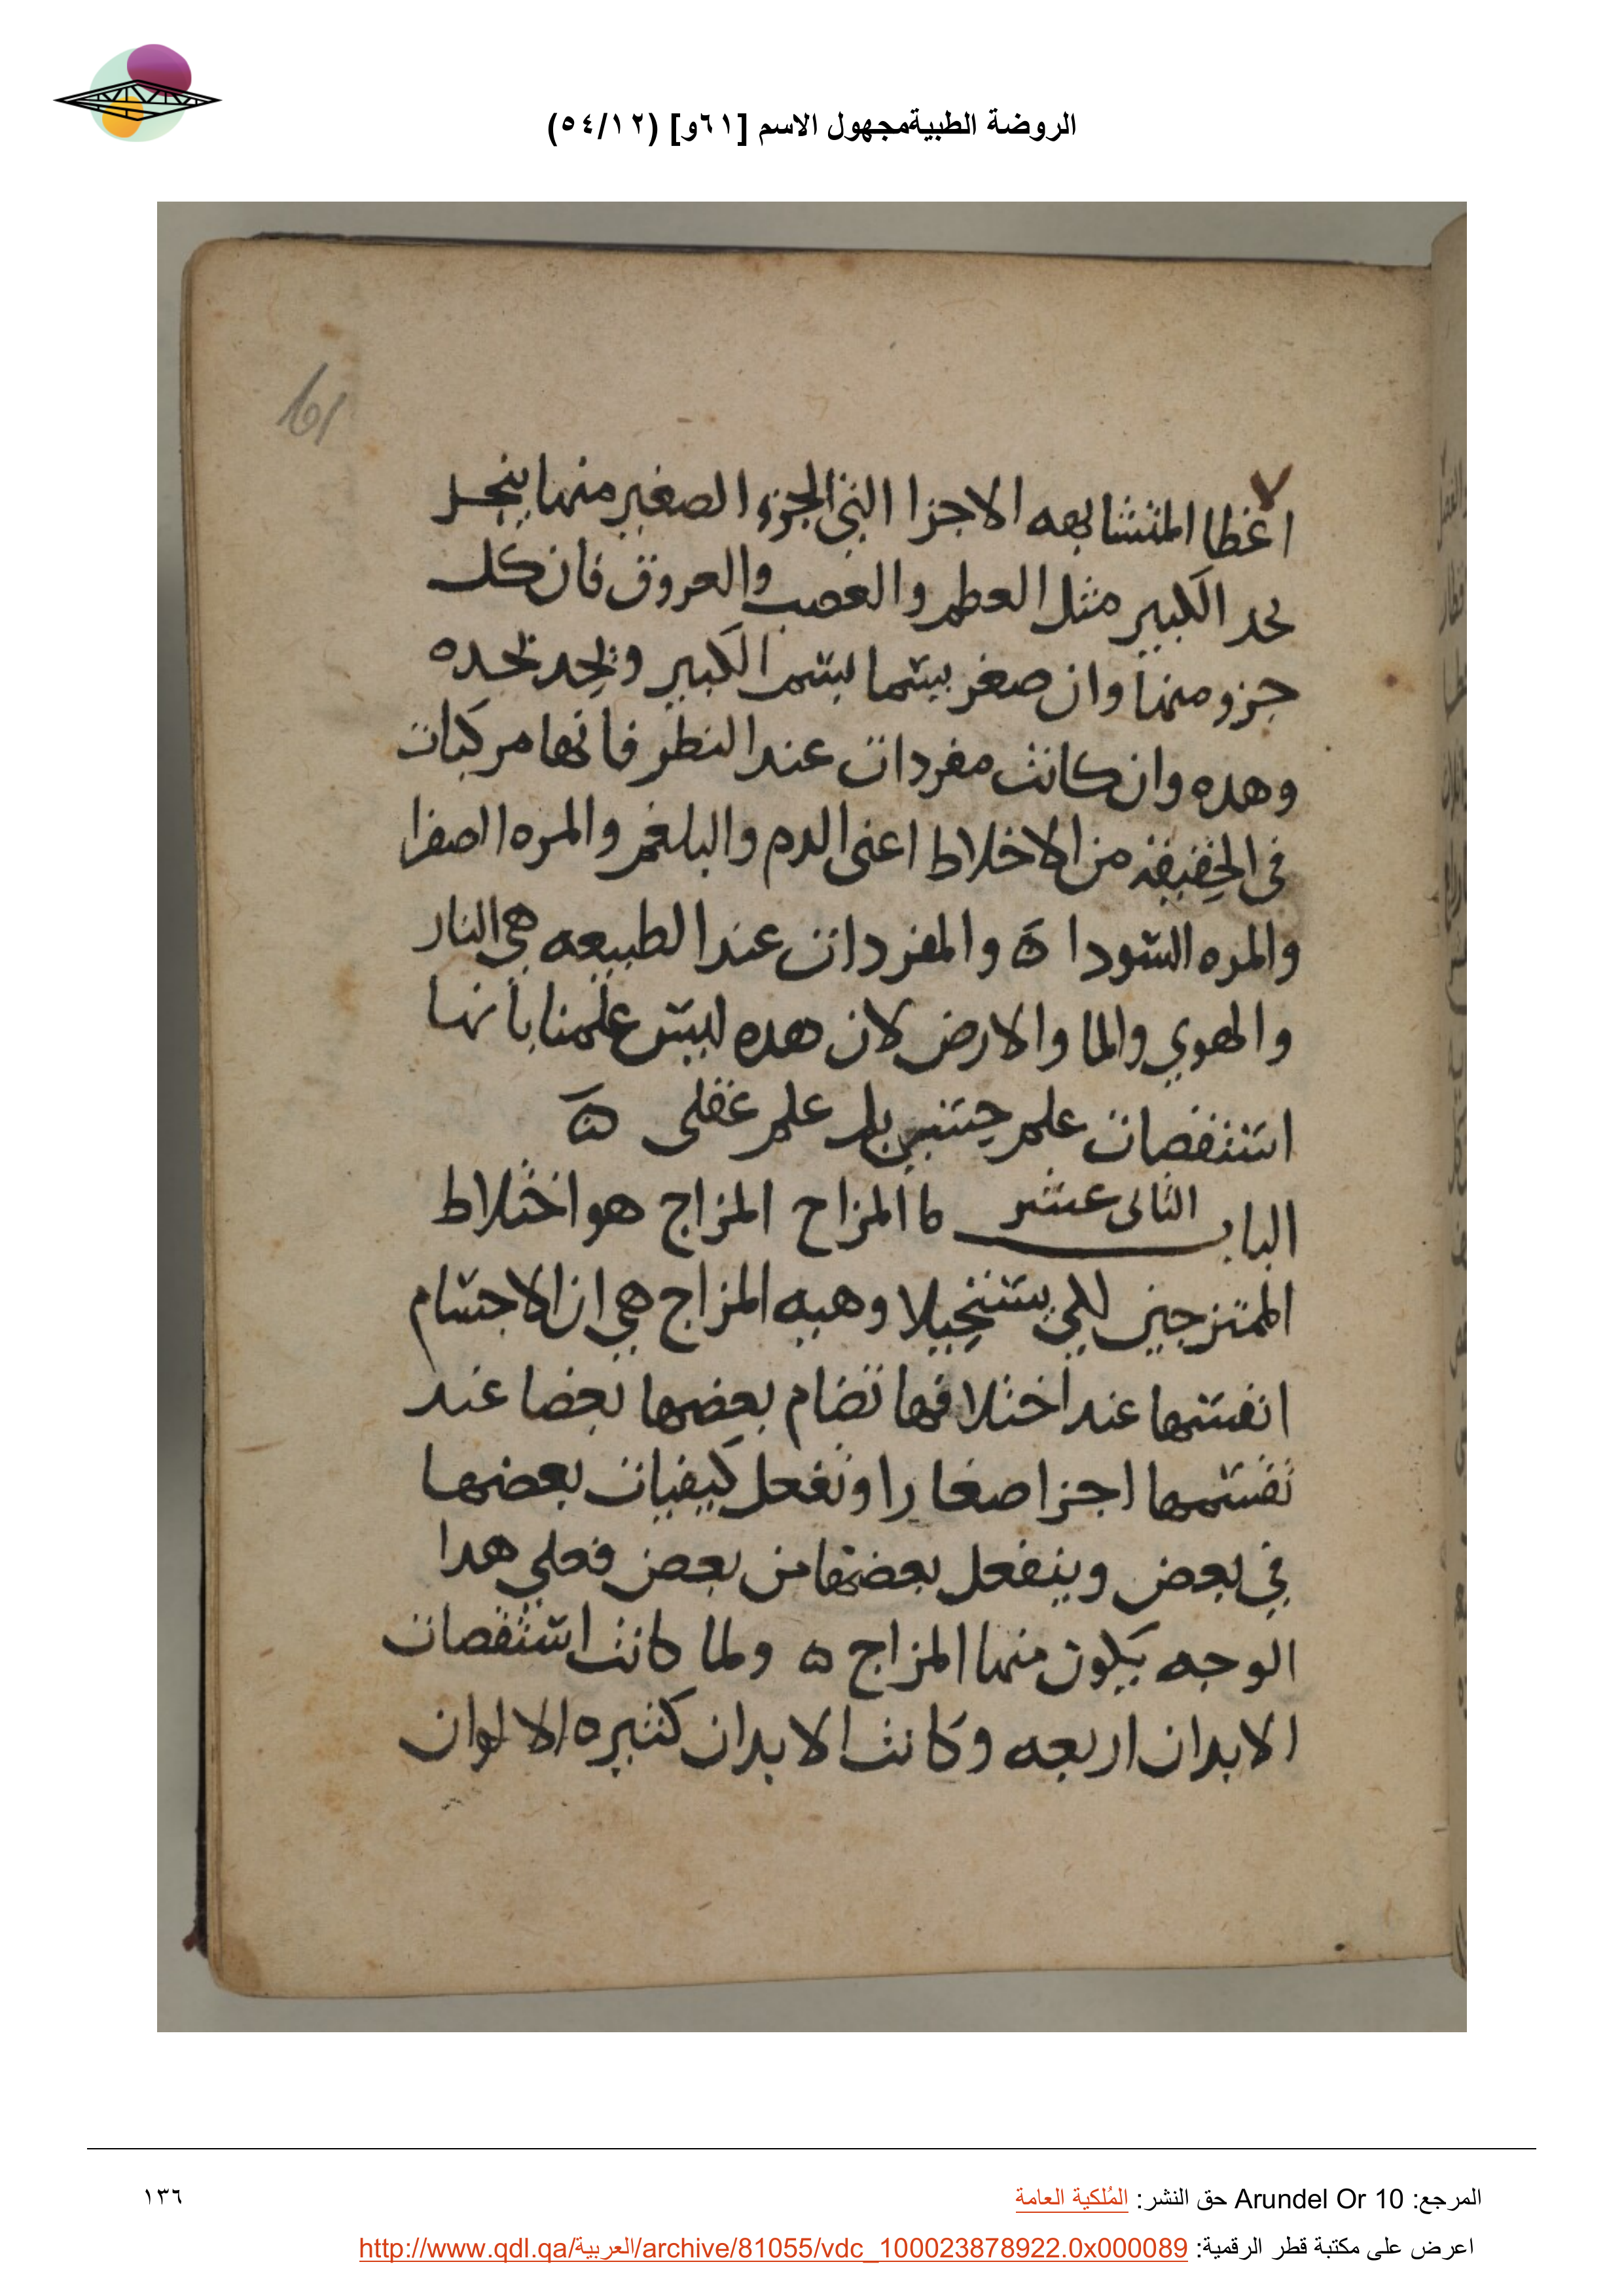 الروضة الطبيةمجهول الاسم [٦١و] (٥٤/١٢)
61
اعظا المتشابهه الاجزا التي الجزء الصغير منها ينحل
بحد الكبير مثل العظم والعصب والعروق فان كل
جزو منها وان صغر يسما بسم الكبير ويحد بحده
وهده وان كانت مفردات عند النظر فانها مركبات
في الحقيقه من الاخلاط اعنى الدم والبلغم والمره الصفرا
والمره السودا ه والمفردات عند الطبيعه هي النار
والهوي والما والارض لان هده ليس علمنا بانها
استقصات علم حسي بل علم عقلى ه
الباب الثانى عشر ما المزاح المزاج هو اختلاط
الممتزجين لكي يستحيلا وهيه المزاج هي ان الاجسام
انفسها عند اختلافها تضام بعضها بعضا عند
تقسمها اجزا صغارا وتفعل كيفيات بعضها
في بعض وينفعل بعضها من بعض فعلي هدا
الوجه يكون منها المزاج ه ولما كانت استقصات
الابدان اربعه وكانت الابدان كثيره الالوان
المرجع: Arundel Or 10 حق النشر: المُلكية العامة
١٣٦
اعرض على مكتبة قطر الرقمية: http://www.qdl.qa/العربية/archive/81055/vdc_100023878922.0x000089